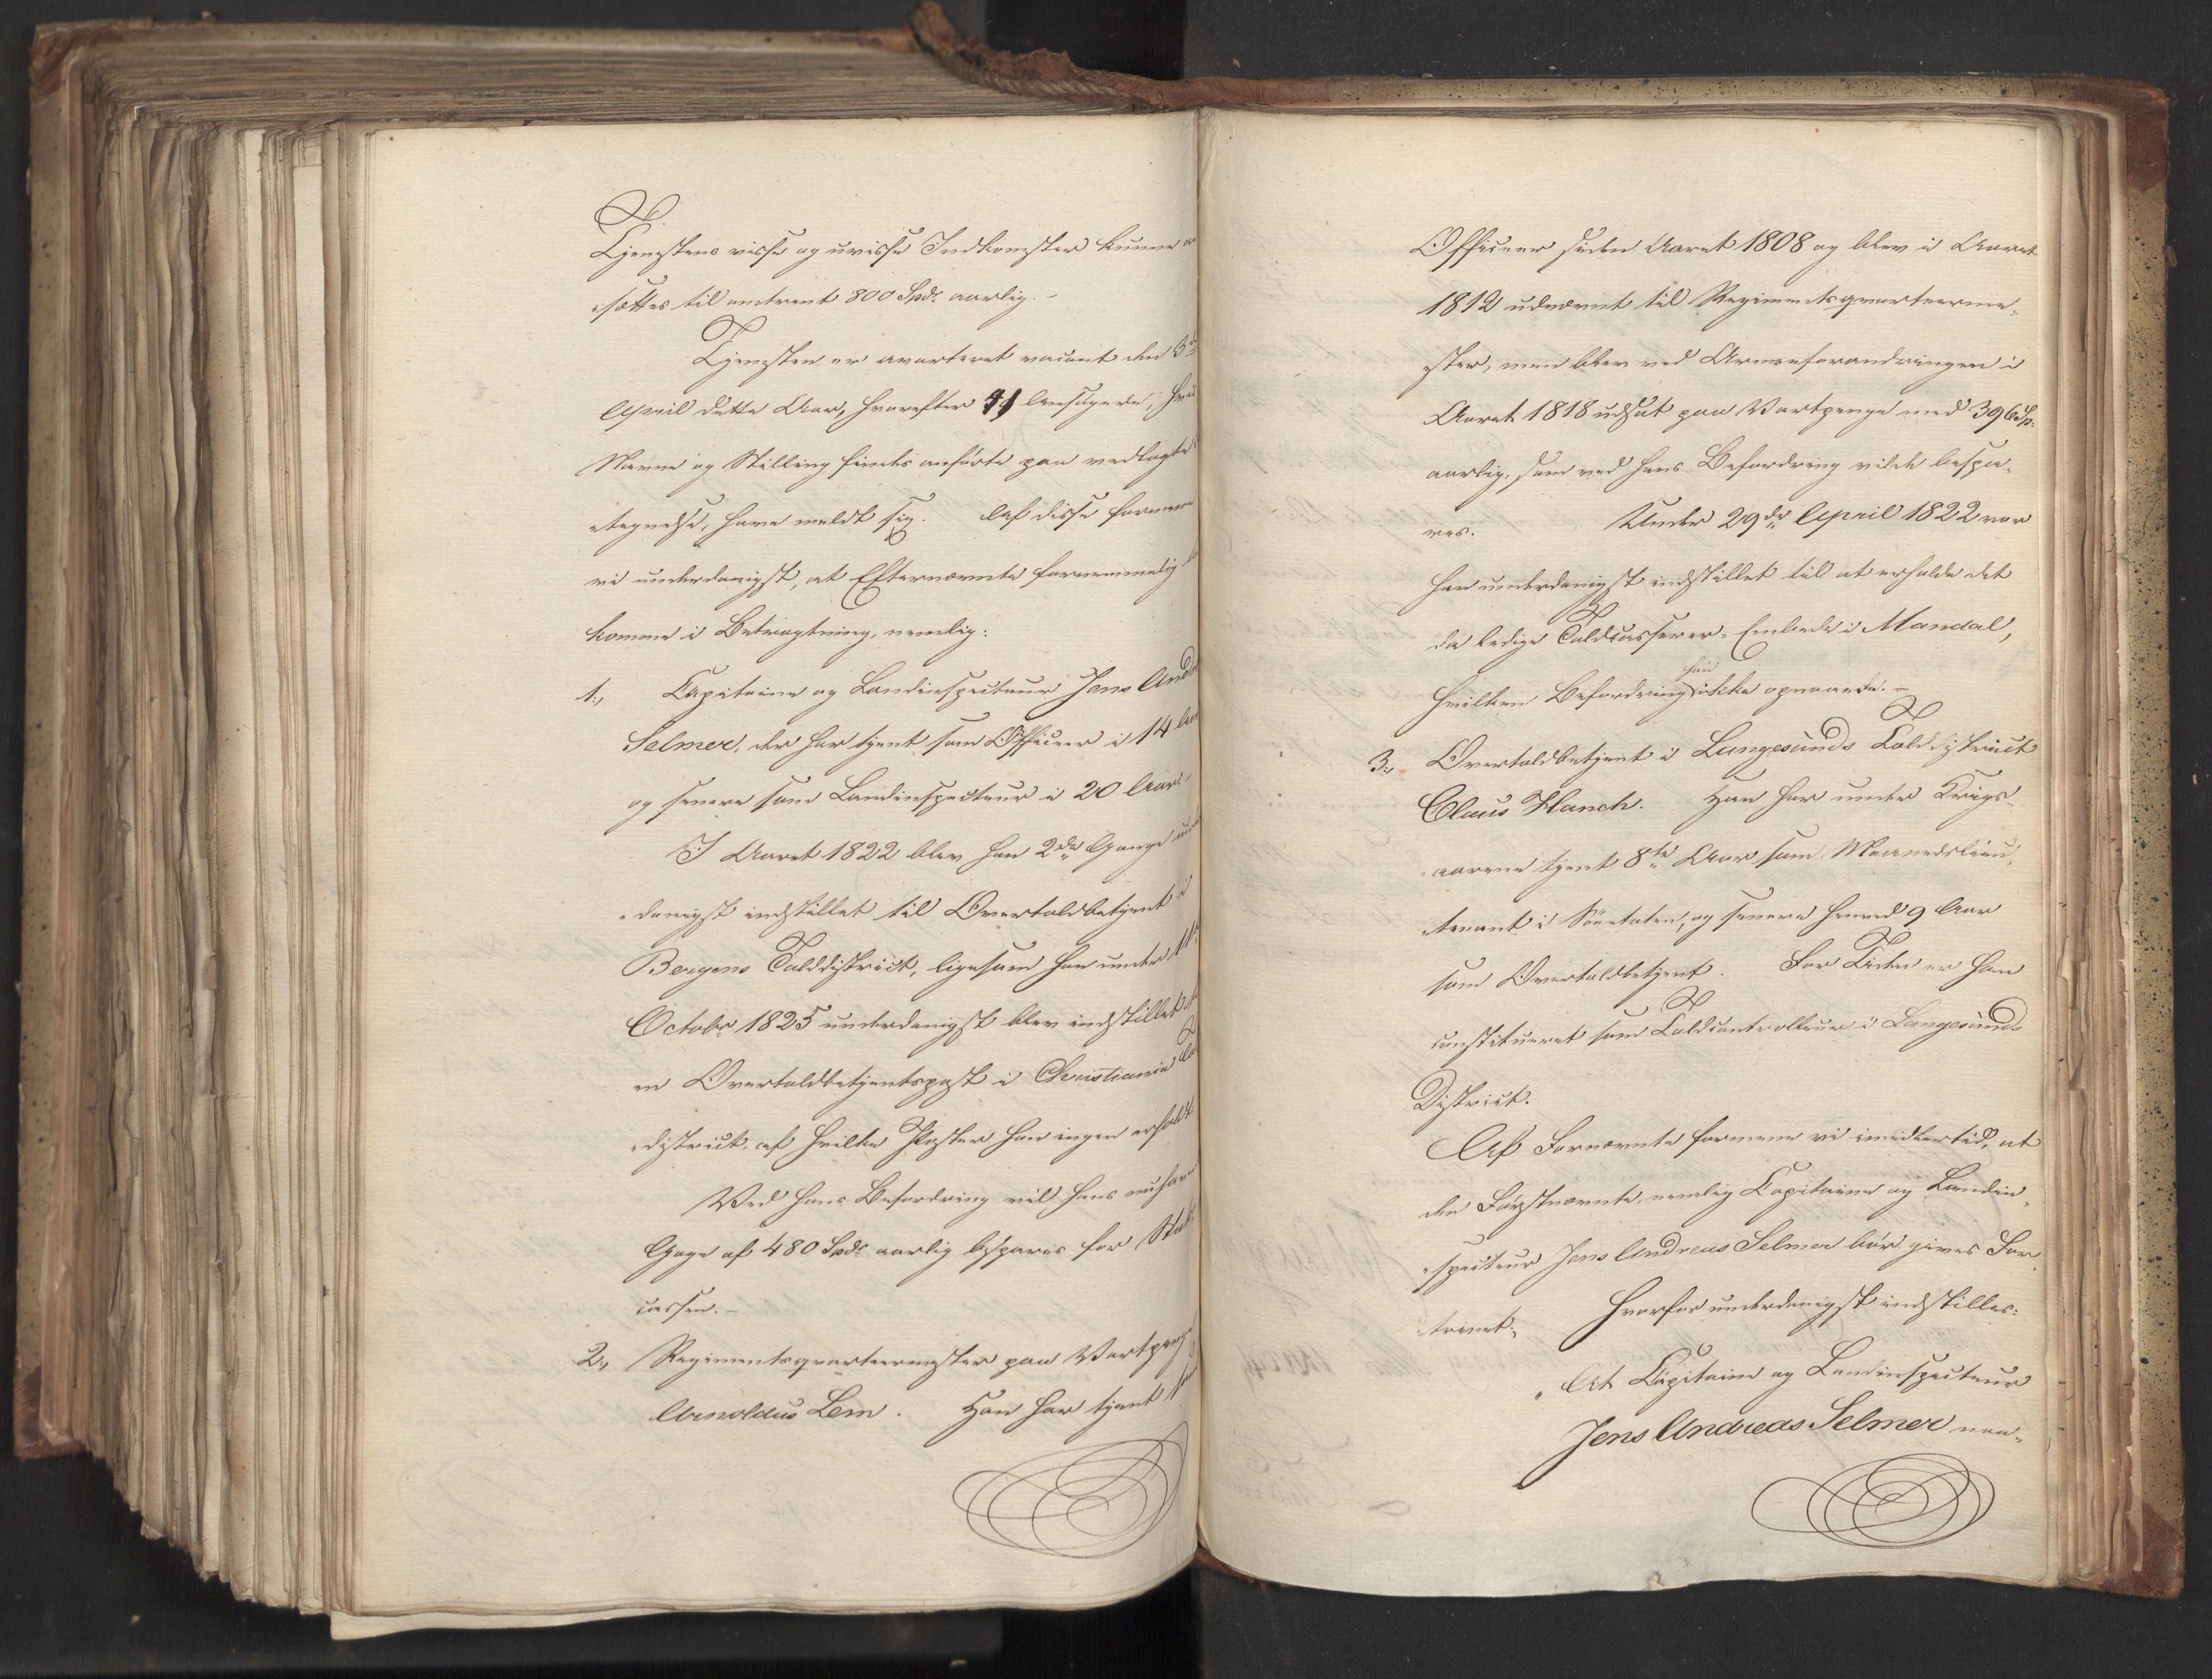 Tjenestens visse og uvisse Indkomster kunne
sættes til omtrent 800 Spd. aarlig. -
Tjenesten er avarteret vacant den 3die
April dette Aar, hvorefter 41 Ansøgere,
Navne og Stilling findes anførte paa vedlagte
tegnelse, have meldt sig. Af disse formene
vi underdanigst, at Efternævnte fornemmelig
komme i Betragtning, nemlig:
1., Capitaine og Landinspecteur Jens Andr
Selmer, der har tjent som Officeer i 14 Aar
og senere som Landinspecteur i 20 Aar.
I Aaret 1822 blev han 2de Gange un
danigst indstillet til Overtoldbetjent i
Bergens Tolddistrict, ligesom han under 11
Octobr. 1825 underdanigst blev indstillet
en Overtoldbetjentspost i Christiania
district, af hvilke Poster han ingen erholdt
Ved hans Befordring vil hans nuhav
Gage af 480 Spd. aarlig bespares for Stats
cassen. -
2., Regimentsqvarteermester paa Vartpenge
Arnoldus Lem. Han har tjent
Officeer siden Aaret 1808 og blev i Aaret
1812 udnævnt til Regimentsqvarteerme-
ster, men blev ved Armeeforandringen i
Aaret 1818 udsat paa Vartpenge med 396 Sp.
aarlig, som ved hans Befordring vilde bespa-
res. Under 29de April 1822 var
han underdanigst indstillet til at erholde det
da ledige Toldcasserer-Embede i Mandal,
hvilken Befordring han ikke opnaaede. -
3., Overtoldbetjent i Langesunds Tolddistrict
Claus Hanch. Han har under Krigs-
aarene tjent 8te Aar som Maanedslieu-
tenant i Söeetaten, og senere henved 9 Aar
som Overtoldbetjent. For Tiden er han
constitueret som Toldcontrolleur i Langesunds
District.
Af Fornævnte formene vi imidlertid, at
den Førstnævnte, nemlig Capitaine og Landin-
specteur Jens Andreas Selmer bør gives For-
trinet; hvorfor underdanigst indstilles:
"At Capitaine og Landinspecteur
Jens Andreas Selmer naa-